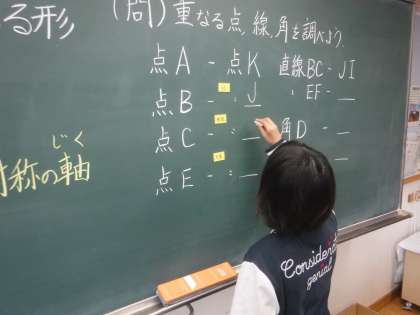 る形
（問）重なる点,線,角を調べよう.
点A - 点K 直線BC - JI
点B - 〃 J 〃 EF - __
点C - 〃 __ 角D - __
点E - 〃 __ __
じく
対称の軸
Considerate
genial